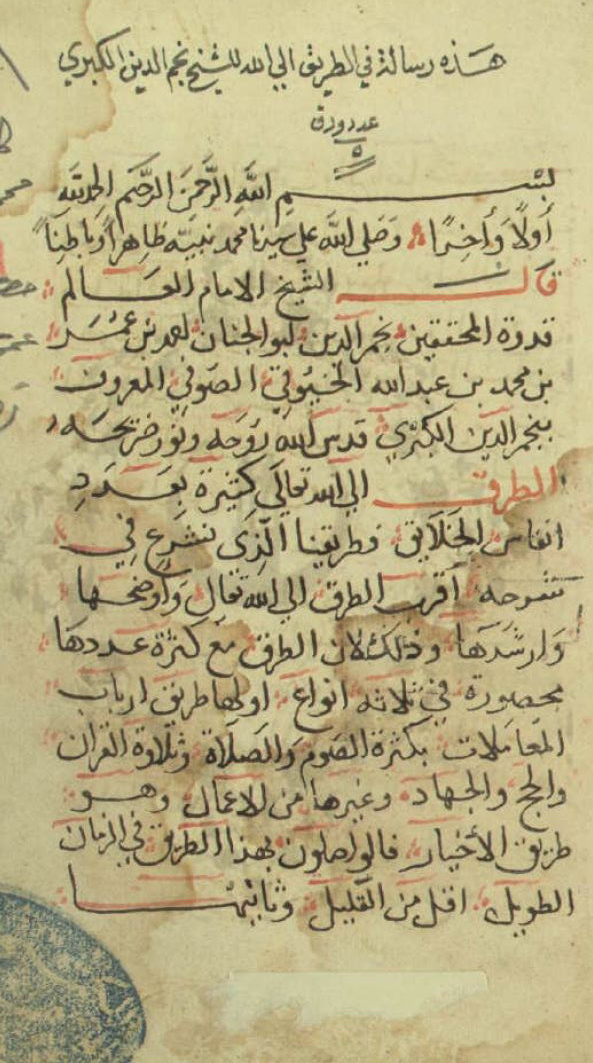 هذه رسالة في الطريق الي الله للشيخ نجم الدين الكبري
عدد ورق
٥
بسم الله الرَّحمنَ الرَّحيَم الحمد لله
أولًا وَأُخِرًا وَصَلي اللهَ علي سيدنا محمد نبيّه ظاهِرًا وَباطِنَاً
قال الشيخ الامام العالم
قدوة المحققين نجم الدين ابو الجنان احمد بن عمر
بن محمد بن عبد الله الخيوقي الصوفي المعروف
بنجم الدين الكبري قدس الله رَوَحه ونوّر ضريحه
الطرق الي الله تعالَي كثيرة بعَدَدِ
انفاس الخَلَايق فطريقنا الذِي نشرع في
شرحه أقرب الطرق الي الله تعالي وَأوضحها
وَارشدَها وذلك لان الطرق معَ كثرة عددها
محصورة في ثلاثه انواع اولها طريق ارباب
المعَاملات بكثرة الصَوم وَالصَلَاة وتلَاوة القرآن
والحج والجهاد وغيرها من الاعمال وهو
طريق الأخيار فالواصلون بهذا الطريق في الزمان
الطويل اقل من القليل وثانيها